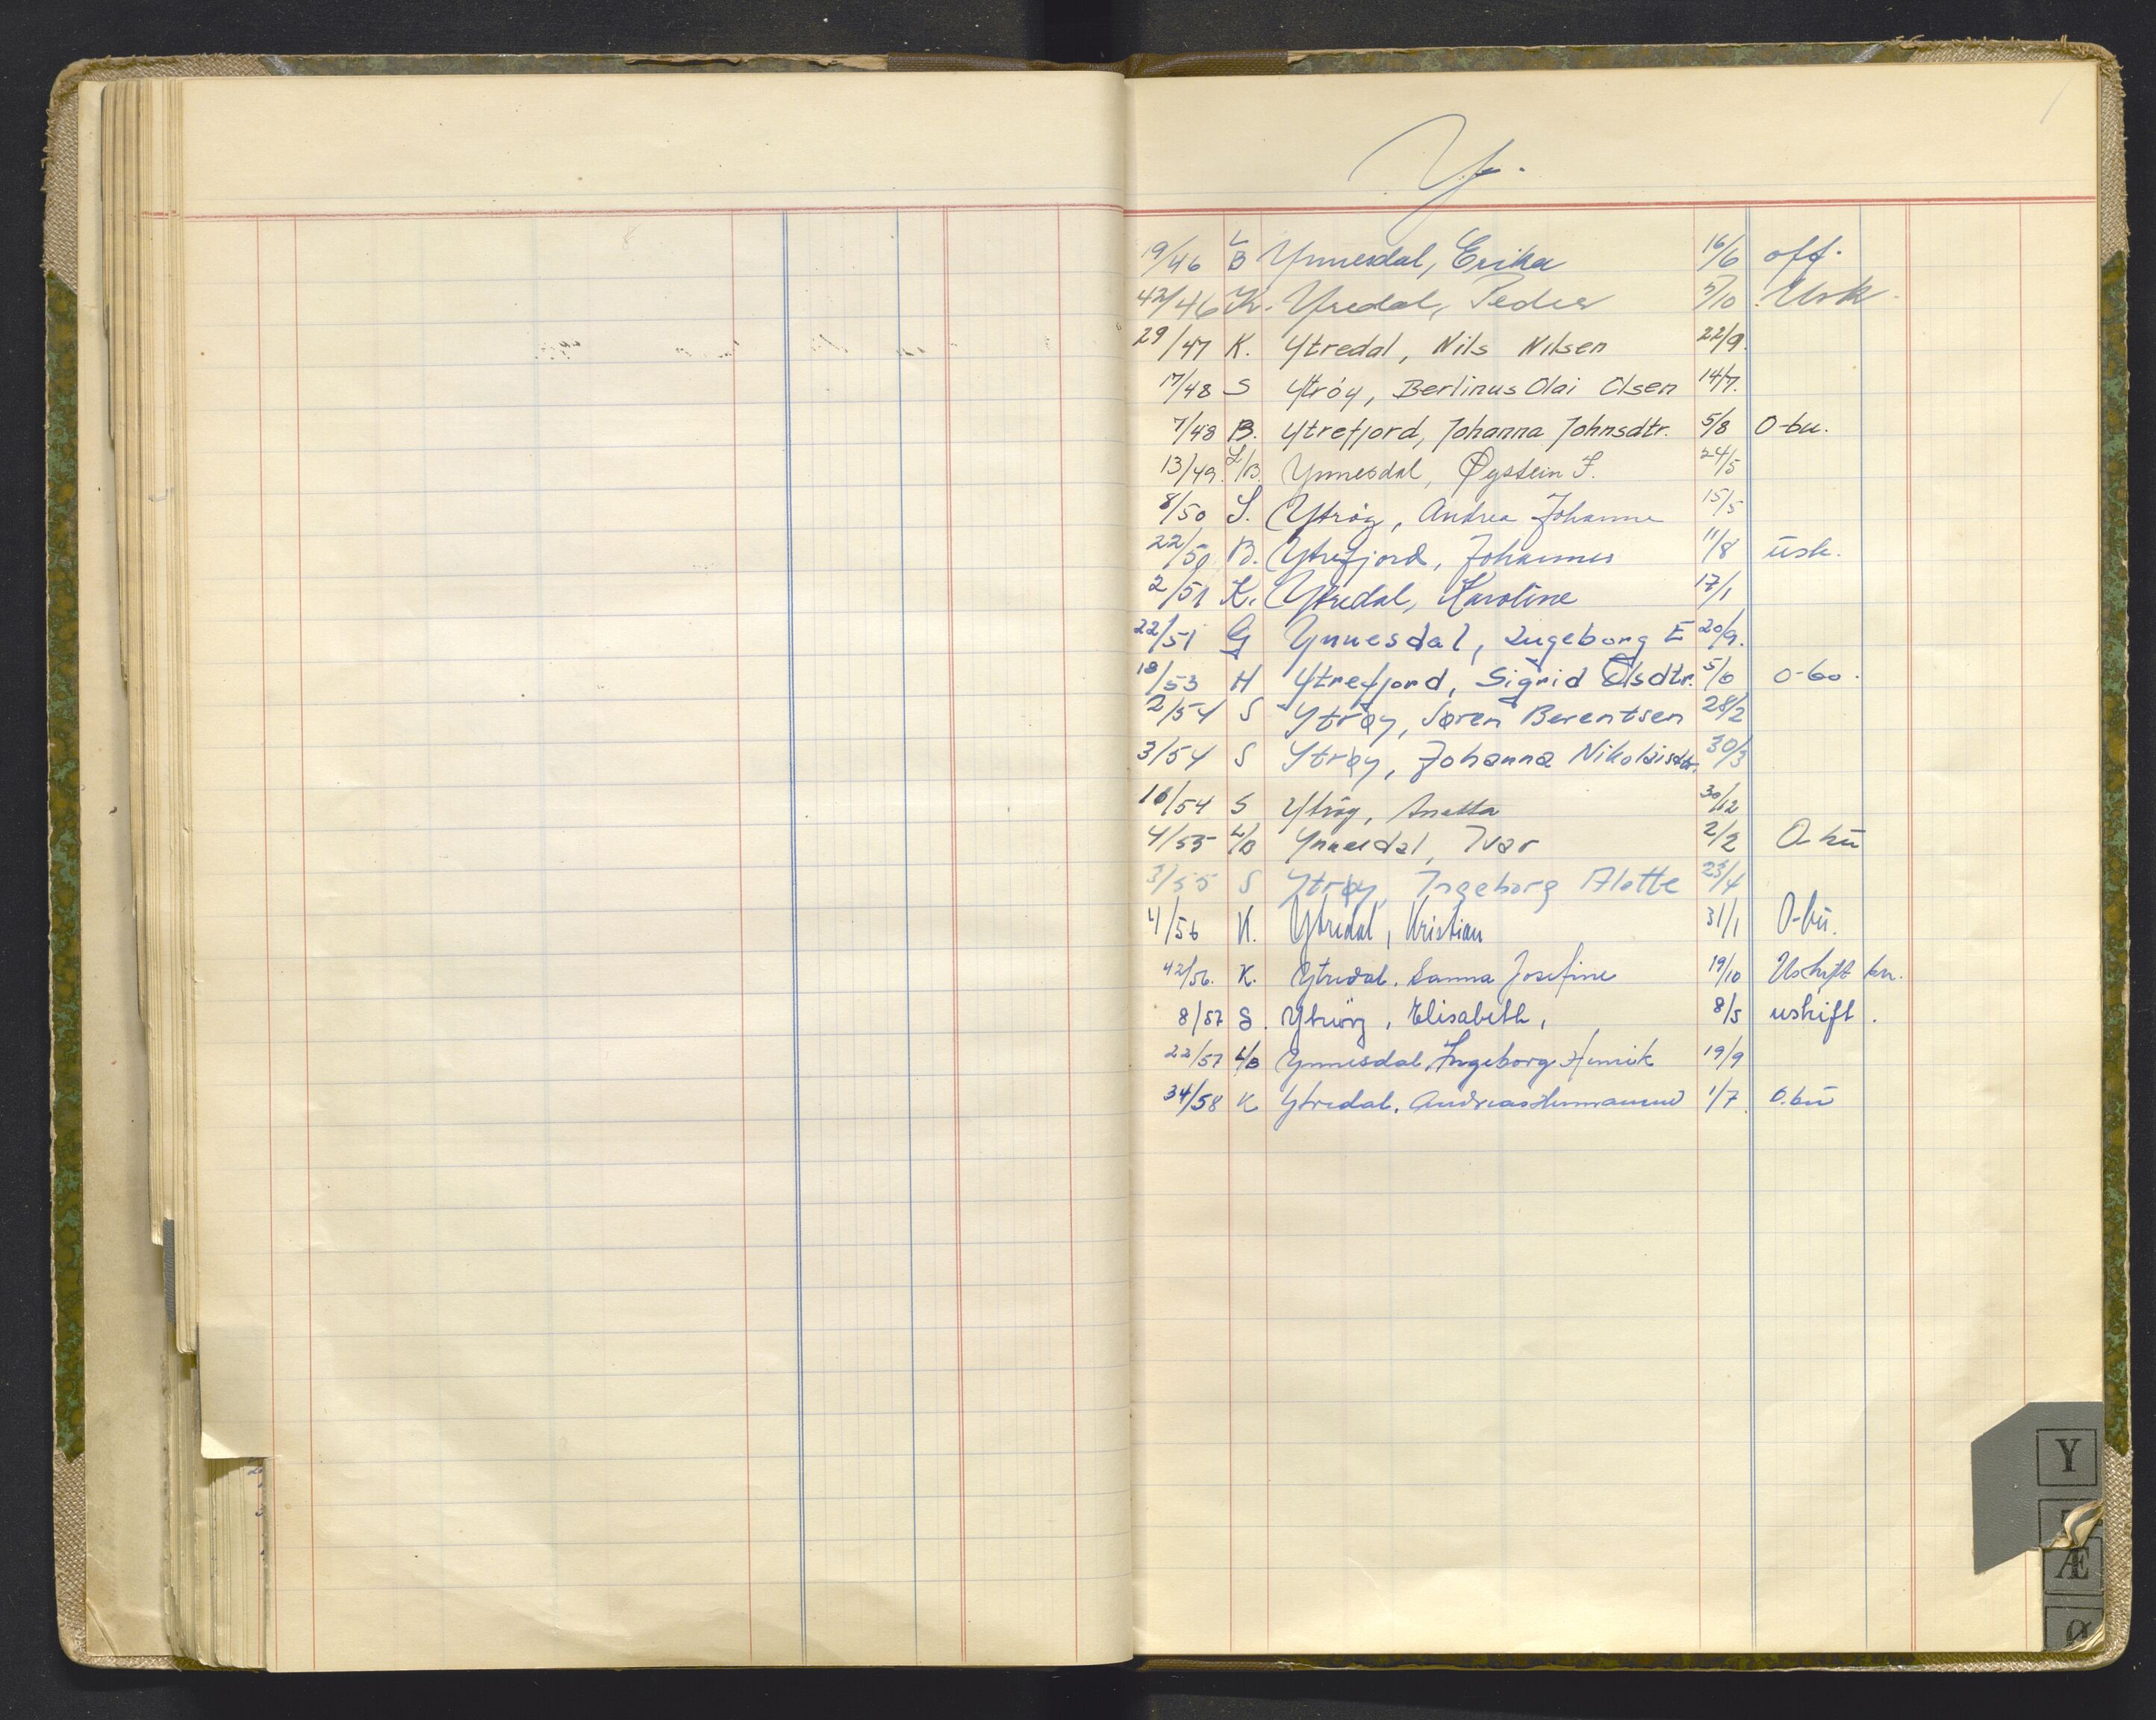 Y.
19/46 L/B Ynnesdal, Erika 16/6 off.
42/46 K. Yredal, Peder 5/10 Usk.
29/47 K. Ytredal, Nils Nilsen 22/9.
17/48 S Ytröy, Berlinus Olai Olsen 14/7.
7/48 B. Ytrefjord, Johanna Johnsdtr. 5/8 O-bu.
13/49. L/B. Ynnesdal, Øystein J. 24/5
8/50 S. Ytröy, Andrea Johanne 15/5
22/50 B. Ytrefjord, Johannes 11/8 usk.
2/51 K. Ytredal, Karoline 17/1
22/51 G Ynnesdal, Ingeborg E 20/9.
18/53 H Ytrefjord, Sigrid Olsdtr. 5/10 o-bo.
2/54 S Ytrøy, Søren Berentsen 28/2
3/54 S Ytrøy, Johanna Nikolaisdtr. 30/3
16/54 S Ytröy, Anetta 30/12
4/55 L/B Ynnesdal, Ivar 2/2 O bu
3/55 S Ytrøy, Ingeborg Alette 23/4
4/56 K. Ytredal, Kristian 31/1 O-bu.
42/56. K. Ytredal. Sanna Josefine 19/10 Uskift bu.
8/57 S. Ytröy, Elisabeth, 8/5 uskift.
22/57 L/B Ynnesdal, Ingeborg 19/9
34/58 K Ytredal. Andreas 1/7. O.bu
Y
Æ
Ø